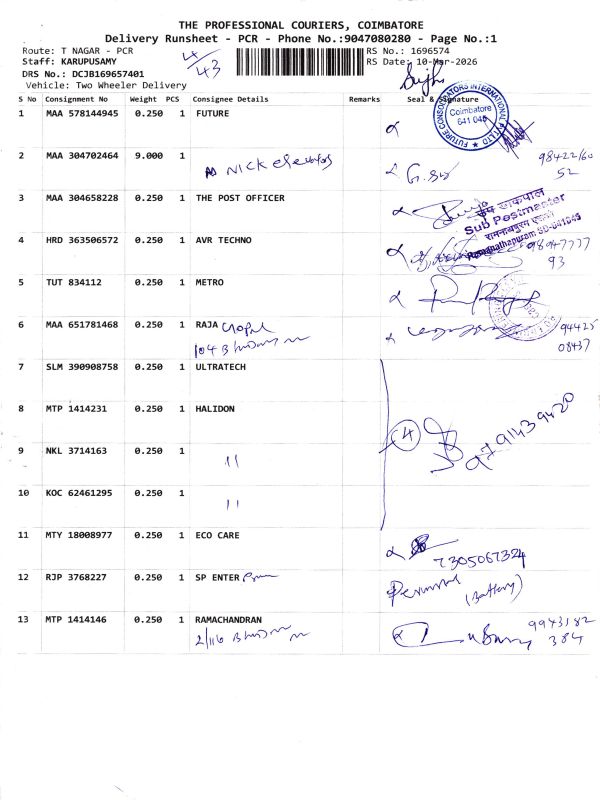 THE PROFESSIONAL COURIERS, COIMBATORE
Delivery Runsheet - PCR - Phone No.:9047080280 - Page No.:1
Route: T NAGAR - PCR
RS No.: 1696574
Staff: KARUPUSAMY
RS Date: 10-Mar-2026
DRS No.: DCJB169657401
4/43
Vehicle: Two Wheeler Delivery
S No Consignment No Weight PCS Consignee Details Remarks Seal & Signature
1 MAA 578144945 0.250 1 FUTURE
FUTURE CONSOLIDATORS INTERNATIONAL PVT LTD
Coimbatore
641 045
2 MAA 304702464 9.000 1
98422/60
52
3 MAA 304658228 0.250 1 THE POST OFFICER
उप डाकपाल
Sub Postmaster
Ramanathapuram SO-641045
4 HRD 363506572 0.250 1 AVR TECHNO
98947777
93
5 TUT 834112 0.250 1 METRO
6 MAA 651781468 0.250 1 RAJA
94425
08437
7 SLM 390908758 0.250 1 ULTRATECH
8 MTP 1414231 0.250 1 HALIDON
4
9791439420
9 NKL 3714163 0.250 1 "
10 KOC 62461295 0.250 1 "
11 MTY 18008977 0.250 1 ECO CARE
7305067324
12 RJP 3768227 0.250 1 SP ENTER
(Battery)
13 MTP 1414146 0.250 1 RAMACHANDRAN
2/116
9943182
384